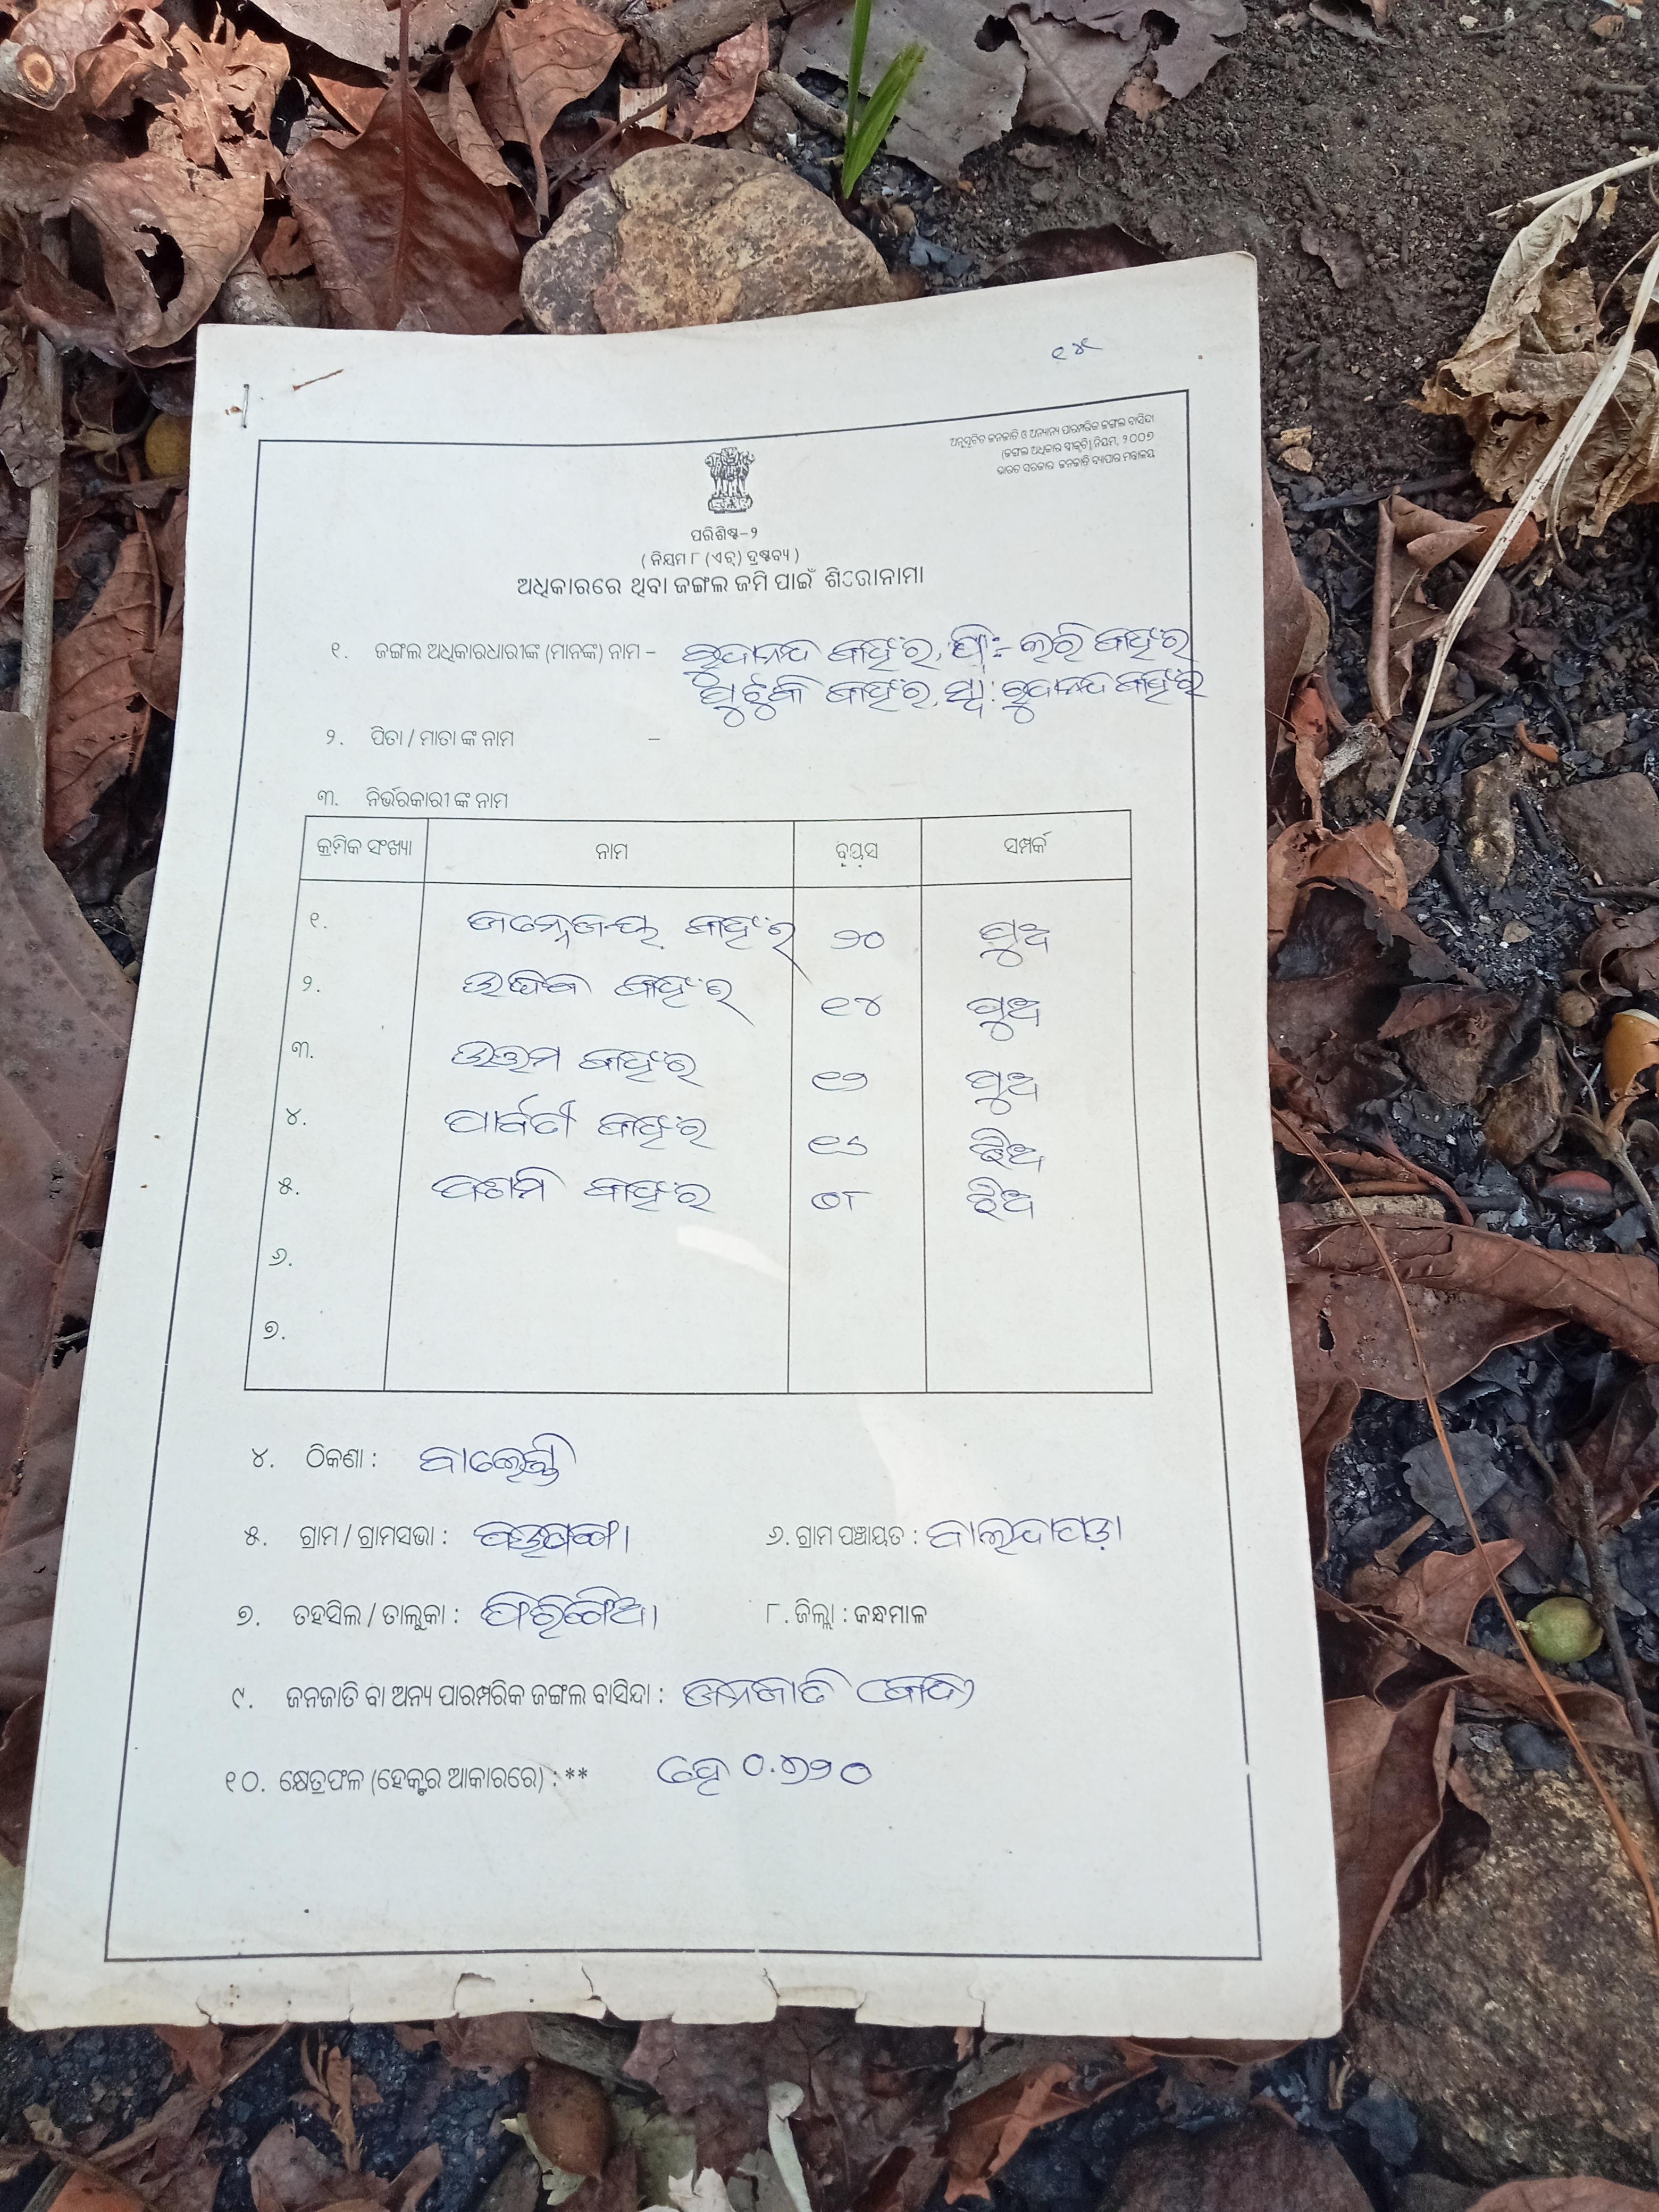 ୧୪୯
ଅନୁସୂଚିତ ଜନଜାତି ଓ ଅନ୍ୟାନ୍ୟ ପାରମ୍ପରିକ ଜଙ୍ଗଲ ବାସିନ୍ଦା
(ଜଙ୍ଗଲ ଅଧିକାର ସ୍ୱୀକୃତି) ନିୟମ, ୨୦୦୭
ଭାରତ ସରକାର ଜନଜାତି ବ୍ୟାପାର ମନ୍ତ୍ରାଳୟ
ପରିଶିଷ୍ଟ-୨
( ନିୟମ ୮ (ଏଚ୍) ଦ୍ରଷ୍ଟବ୍ୟ )
ଅଧିକାରରେ ଥିବା ଜଙ୍ଗଲ ଜମି ପାଇଁ ଶିରୋନାମା
୧. ଜଙ୍ଗଲ ଅଧିକାରଧାରୀଙ୍କ (ମାନଙ୍କ) ନାମ – କହଁର, ପି:- କହଁର
କହଁର, ସ୍ୱା: କହଁର
୨. ପିତା / ମାତା ଙ୍କ ନାମ –
୩. ନିର୍ଭରକାରୀ ଙ୍କ ନାମ
କ୍ରମିକ ସଂଖ୍ୟା ନାମ ବୟସ ସମ୍ପର୍କ
୧. ଜନ୍ମେଜୟ କହଁର ୨୦ ପୁଅ
୨. କହଁର ୧୪ ପୁଅ
୩. ଉତ୍ତମ କହଁର ୧୨ ପୁଅ
୪. ପାର୍ବତୀ କହଁର ୧୬ ଝିଅ
୫. ଦଶମି କହଁର ୦୮ ଝିଅ
୬.
୭.
୪. ଠିକଣା :
୫. ଗ୍ରାମ / ଗ୍ରାମସଭା : ୬. ଗ୍ରାମ ପଞ୍ଚାୟତ : ବାଲନ୍ଦାପଡ଼ା
୭. ତହସିଲ / ତାଲୁକା : ଫିରିଙ୍ଗିଆ ୮. ଜିଲ୍ଲା : କନ୍ଧମାଳ
୯. ଜନଜାତି ବା ଅନ୍ୟ ପାରମ୍ପରିକ ଜଙ୍ଗଲ ବାସିନ୍ଦା : ଜନଜାତି (କନ୍ଧ)
୧୦. କ୍ଷେତ୍ରଫଳ (ହେକ୍ଟର ଆକାରରେ) : ** ହେ